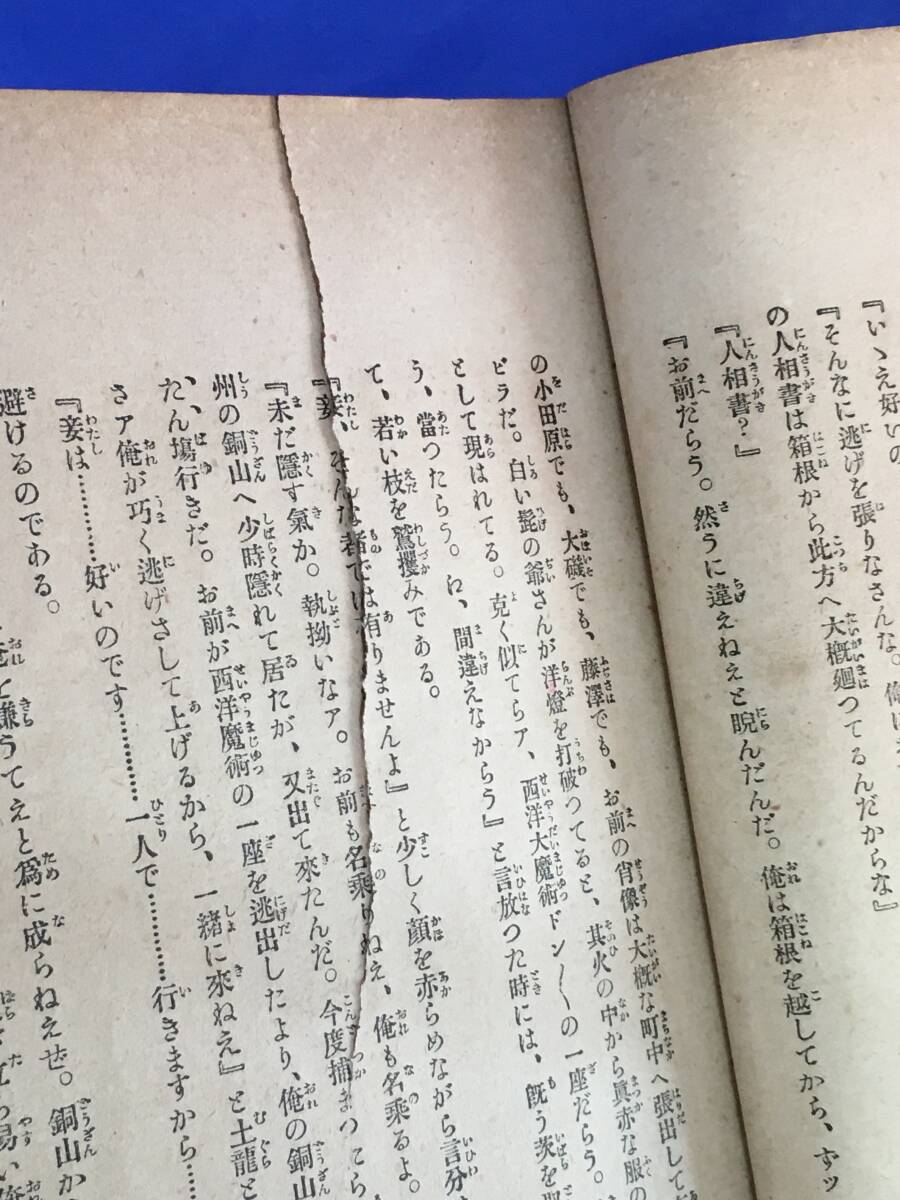 『いゝえ好いの
『そんなに逃げを張りなさんな。俺は
の人相書は箱根から此方へ大概廻つてるんだからな』
『人相書？』
『お前だらう。然うに違えねえと睨んだんだ。俺は箱根を越してから、すッ
の小田原でも、大磯でも、藤澤でも、お前の肖像は大概な町中へ張出して
ビラだ。白い髭の爺さんが洋燈を打破つてると、其火の中から眞赤な服の
として現はれてる。克く似てらア、西洋大魔術ドン〱の一座だらう。
う、當つたらう。ね、間違えなからう』と言放つた時には、既う茨を
て、若い枝を鷲攫みである。
『妾、そんな者では有りませんよ』と少しく顔を赤らめながら言分
『未だ隱す氣か。執拗いなア。お前も名乘りねえ、俺も名乘るよ。
州の銅山へ少時隱れて居たが、又出て來たんだ。今度捕まつこら
たん塲行きだ。お前が西洋魔術の一座を逃出したより、俺の銅山
さア俺が巧く逃げさして上げるから、一緒に來ねえ』と土龍と
『妾は………好いのです…………一人で…………行きますから……
避けるのである。
嫌うてえと爲に成らねえぜ。銅山か